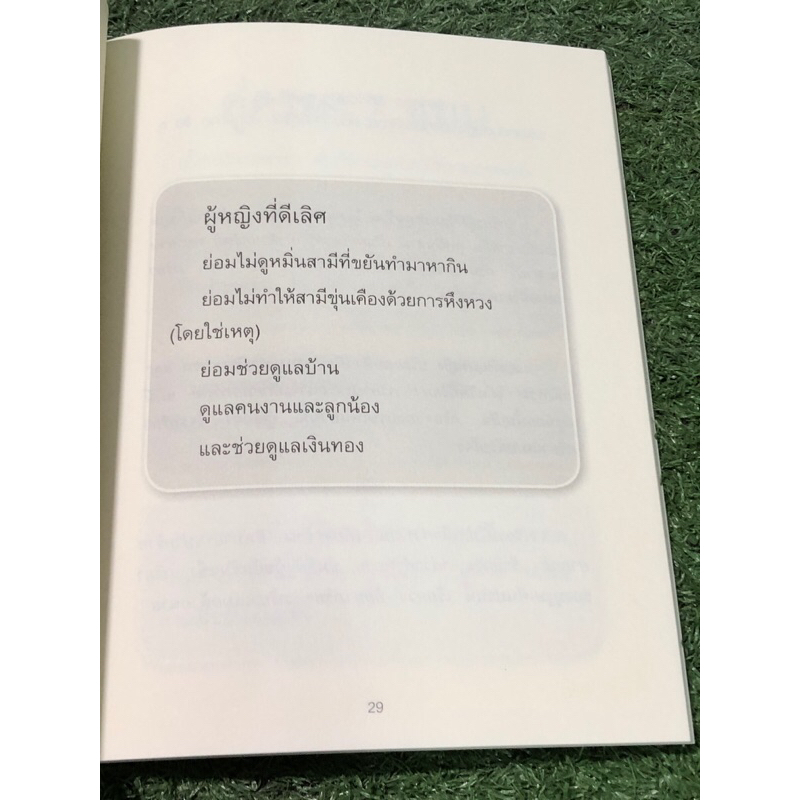 ผู้หญิงที่ดีเลิศ
ย่อมไม่ดูหมิ่นสามีที่ขยันทำมาหากิน
ย่อมไม่ทำให้สามีขุ่นเคืองด้วยการหึงหวง
(โดยใช่เหตุ)
ย่อมช่วยดูแลบ้าน
ดูแลคนงานและลูกน้อง
และช่วยดูแลเงินทอง
29